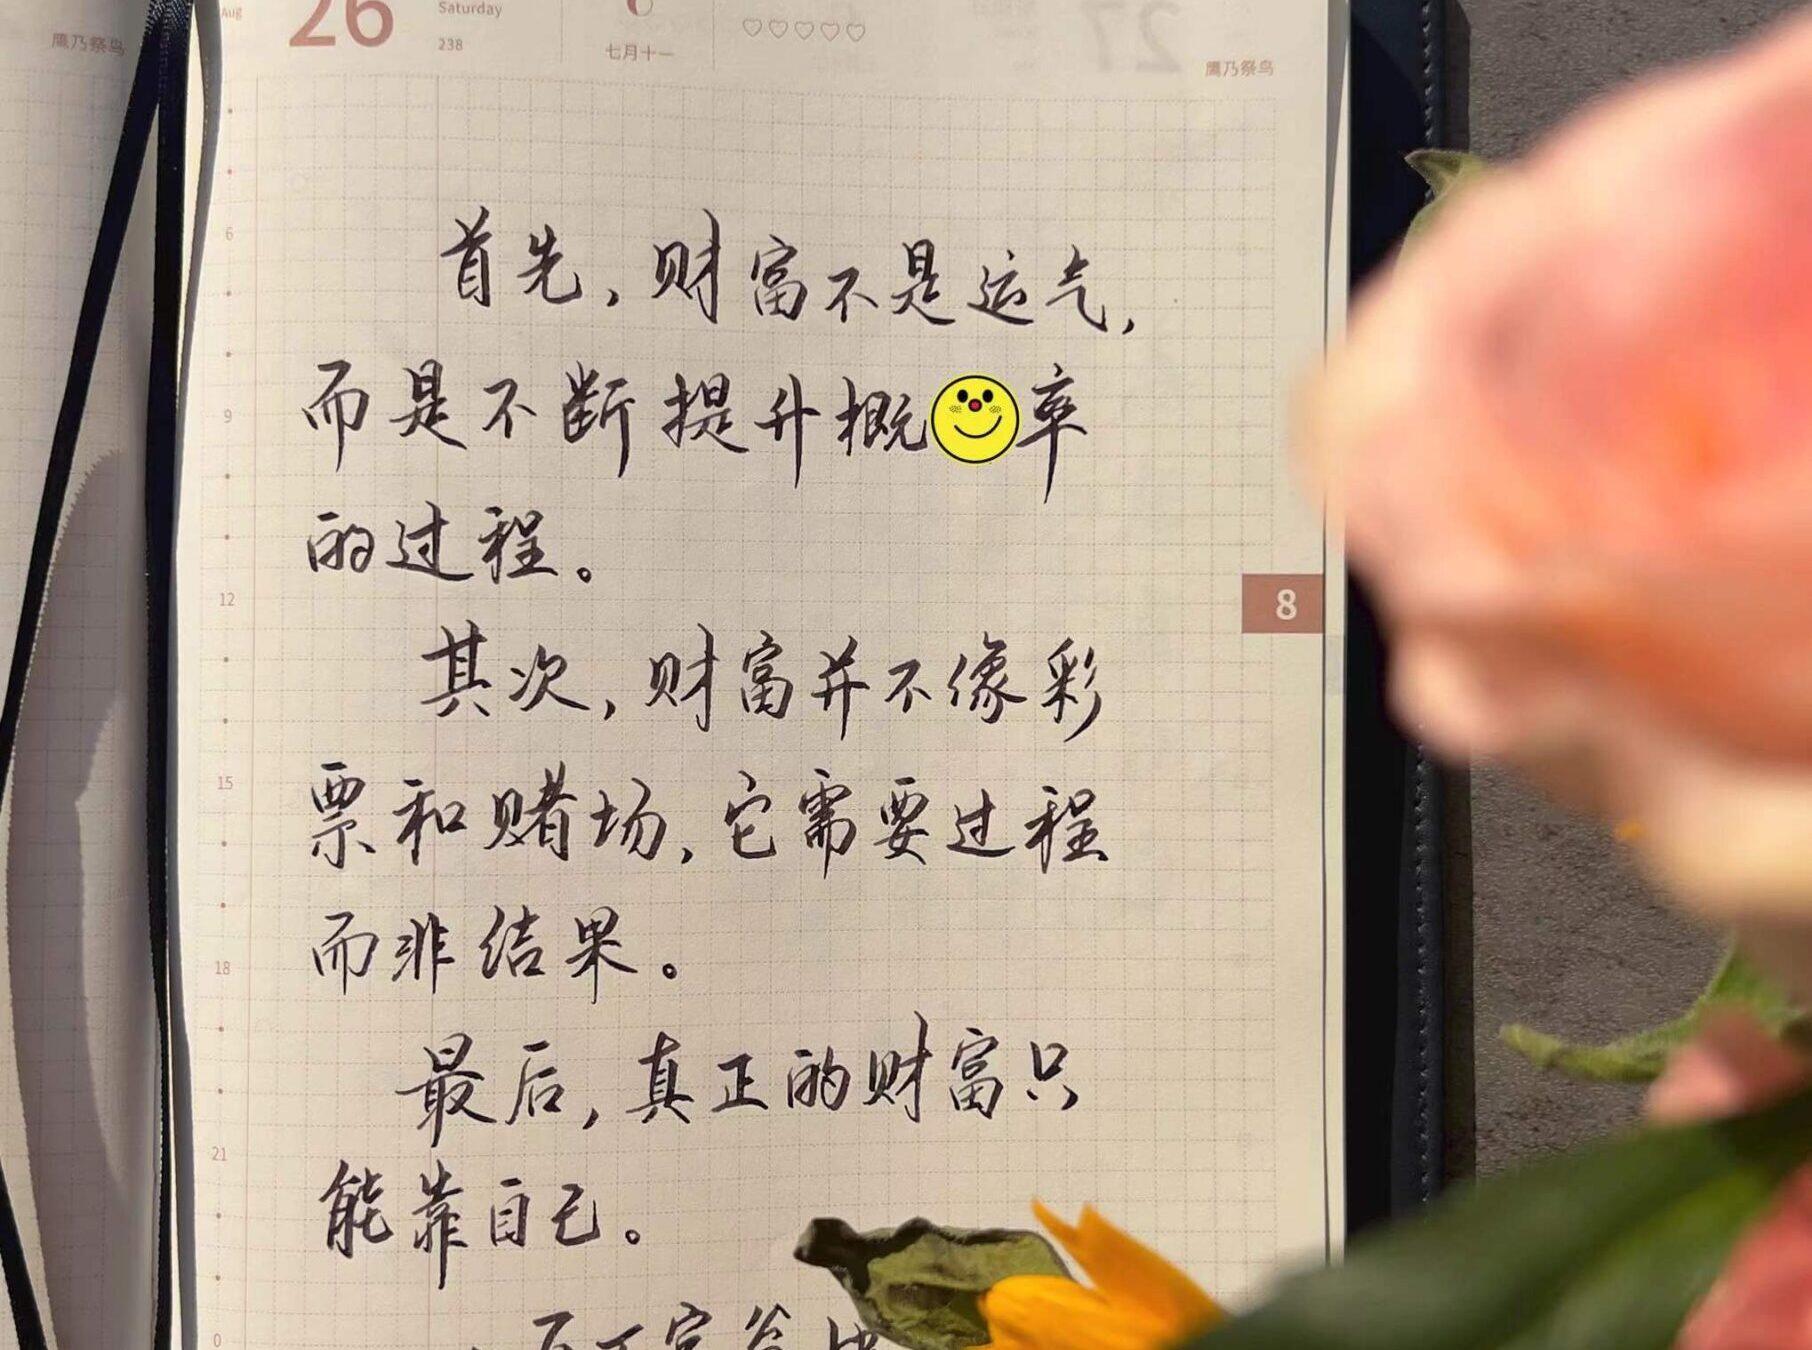 Aug 26 Saturday
238
七月十一
鹰乃祭鸟
鹰乃祭鸟
27
首先，财富不是运气，
6
而是不断提升概率
9
的过程。
12
8
其次，财富并不像彩
票和赌场，它需要过程
15
而非结果。
18
最后，真正的财富只
21
能靠自己。
0